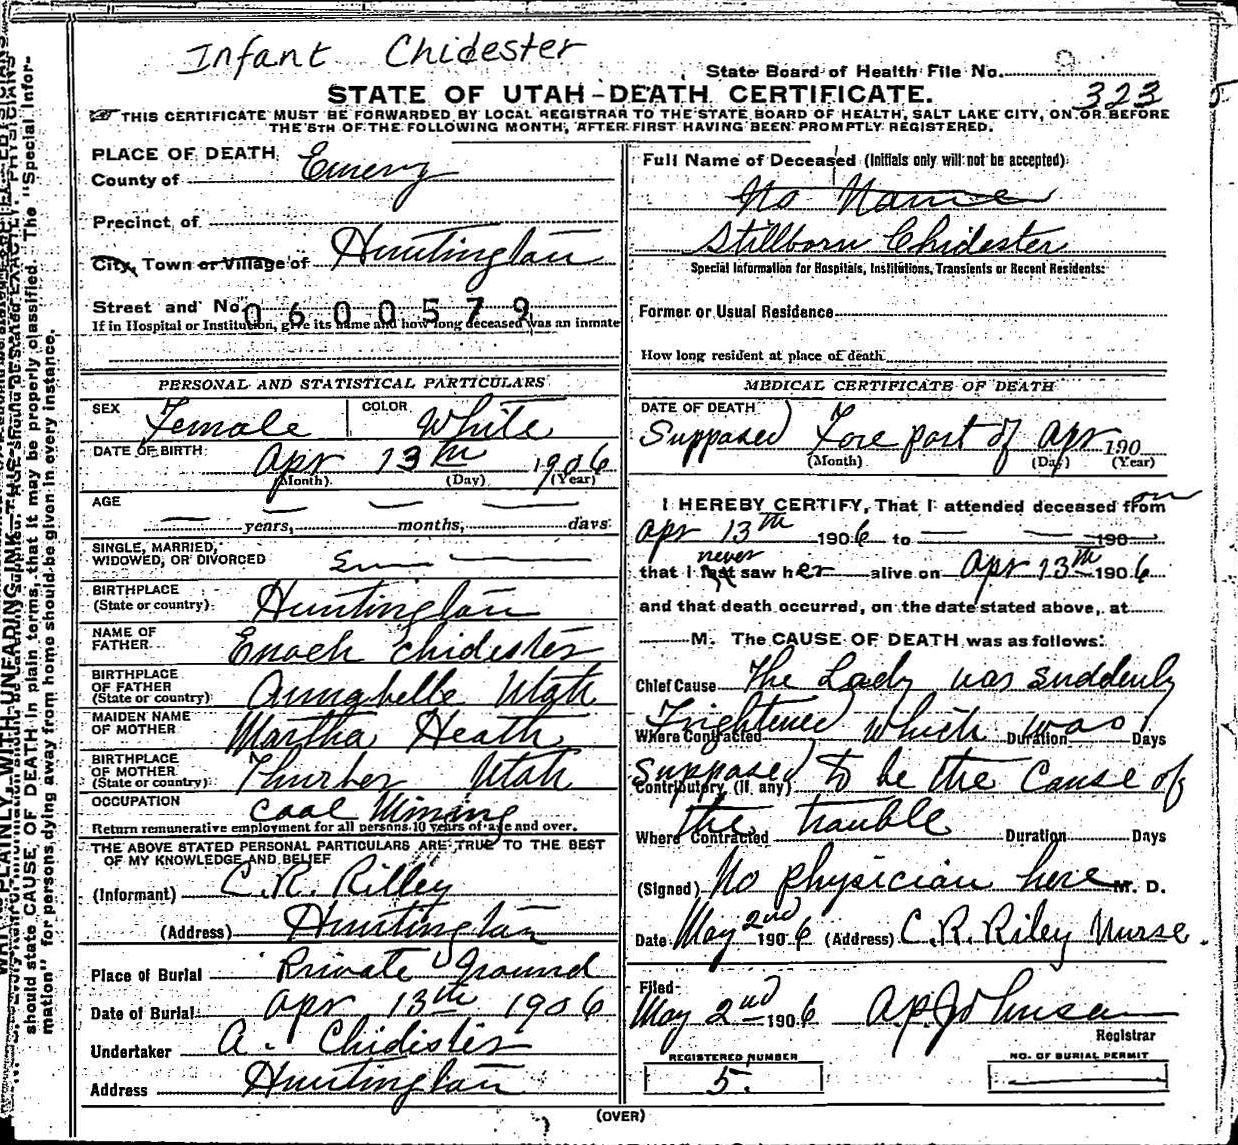 Infant Chidester
State Board of Health File No. 9
323
STATE OF UTAH-DEATH CERTIFICATE.
THIS CERTIFICATE MUST BE FORWARDED BY LOCAL REGISTRAR TO THE STATE BOARD OF HEALTH, SALT LAKE CITY, ON OR BEFORE
THE 5TH OF THE FOLLOWING MONTH, AFTER FIRST HAVING BEEN PROMPTLY REGISTERED.
PLACE OF DEATH
County of Emery
Precinct of
City, Town or Village of Huntington
Street and No. 0600579
If in Hospital or Institution, give its name and how long deceased was an inmate
PERSONAL AND STATISTICAL PARTICULARS
SEX Female COLOR White
DATE OF BIRTH Apr 13th 1906
(Month) (Day) (Year)
AGE
years, months, days
SINGLE, MARRIED,
WIDOWED, OR DIVORCED
BIRTHPLACE
(State or country) Huntington
NAME OF
FATHER Enoch Chidester
BIRTHPLACE
OF FATHER
(State or country) Annabelle Utah
MAIDEN NAME
OF MOTHER Martha Heath
BIRTHPLACE
OF MOTHER
(State or country) Thurber Utah
OCCUPATION Coal Mining
Return remunerative employment for all persons 10 years of age and over.
THE ABOVE STATED PERSONAL PARTICULARS ARE TRUE TO THE BEST
OF MY KNOWLEDGE AND BELIEF
(Informant) C. R. Rilley
(Address) Huntington
Place of Burial Private Ground
Date of Burial Apr 13th 1906
Undertaker A. Chidister
Address Huntington
Full Name of Deceased (Initials only will not be accepted)
No Name
Stillborn Chidester
Special Information for Hospitals, Institutions, Transients or Recent Residents:
Former or Usual Residence
How long resident at place of death
MEDICAL CERTIFICATE OF DEATH
DATE OF DEATH
Supposed Fore part of Apr 190
(Month) (Day) (Year)
I HEREBY CERTIFY, That I attended deceased from on
Apr 13th 1906 to 190
that I last never saw her alive on Apr 13th 1906
and that death occurred, on the date stated above, at
M. The CAUSE OF DEATH was as follows:
Chief Cause The Lady was suddenly
Frightened which was
Where Contracted Duration Days
Supposed to be the Cause of
Contributory (if any)
the trouble
Where Contracted Duration Days
(Signed) No physician here M. D.
Date May 2nd 1906 (Address) C. R. Riley Nurse.
Filed
May 2nd 1906 A P Johnson
Registrar
REGISTERED NUMBER
5.
NO. OF BURIAL PERMIT
(OVER)
should state CAUSE OF DEATH in plain terms, that it may be properly classified. The "Special Infor-
mation" for persons dying away from home should be given in every instance.